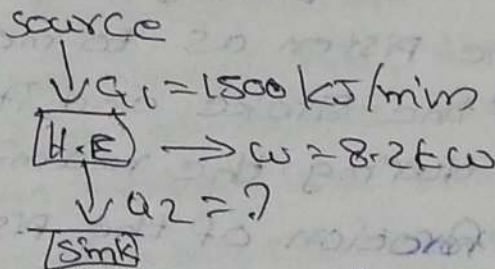 source
Q1 = 1500 kJ/min
H.E → W = 8.2kW
Q2 = ?
Sink